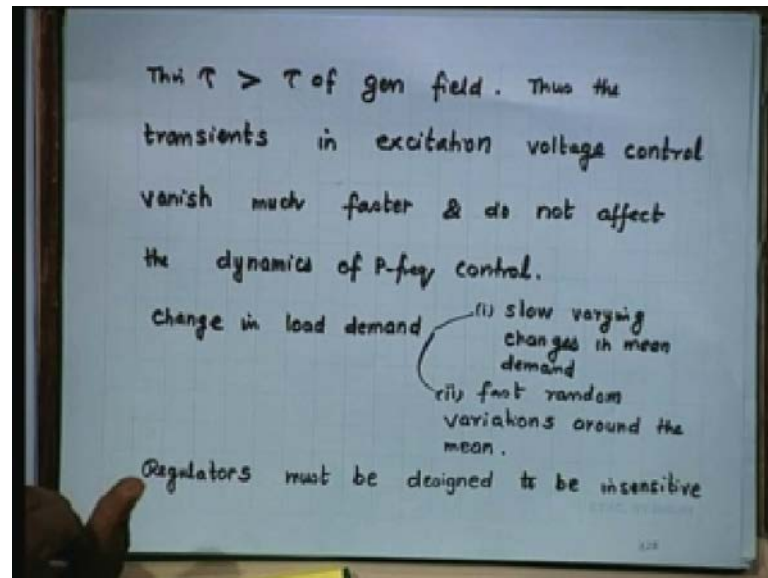 This τ > τ of gen field. Thus the
transients in excitation voltage control
vanish much faster & do not affect
the dynamics of P-freq control.
Change in load demand
(i) slow varying
changes in mean
demand
(ii) fast random
variations around the
mean.
Regulators must be designed to be insensitive